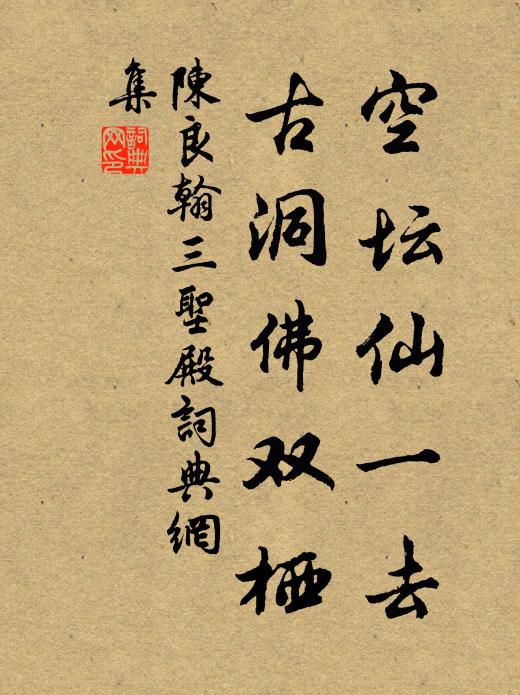 空坛仙一去
古洞佛双栖
陳良翰三聖殿詞典網
集
詞典
网印